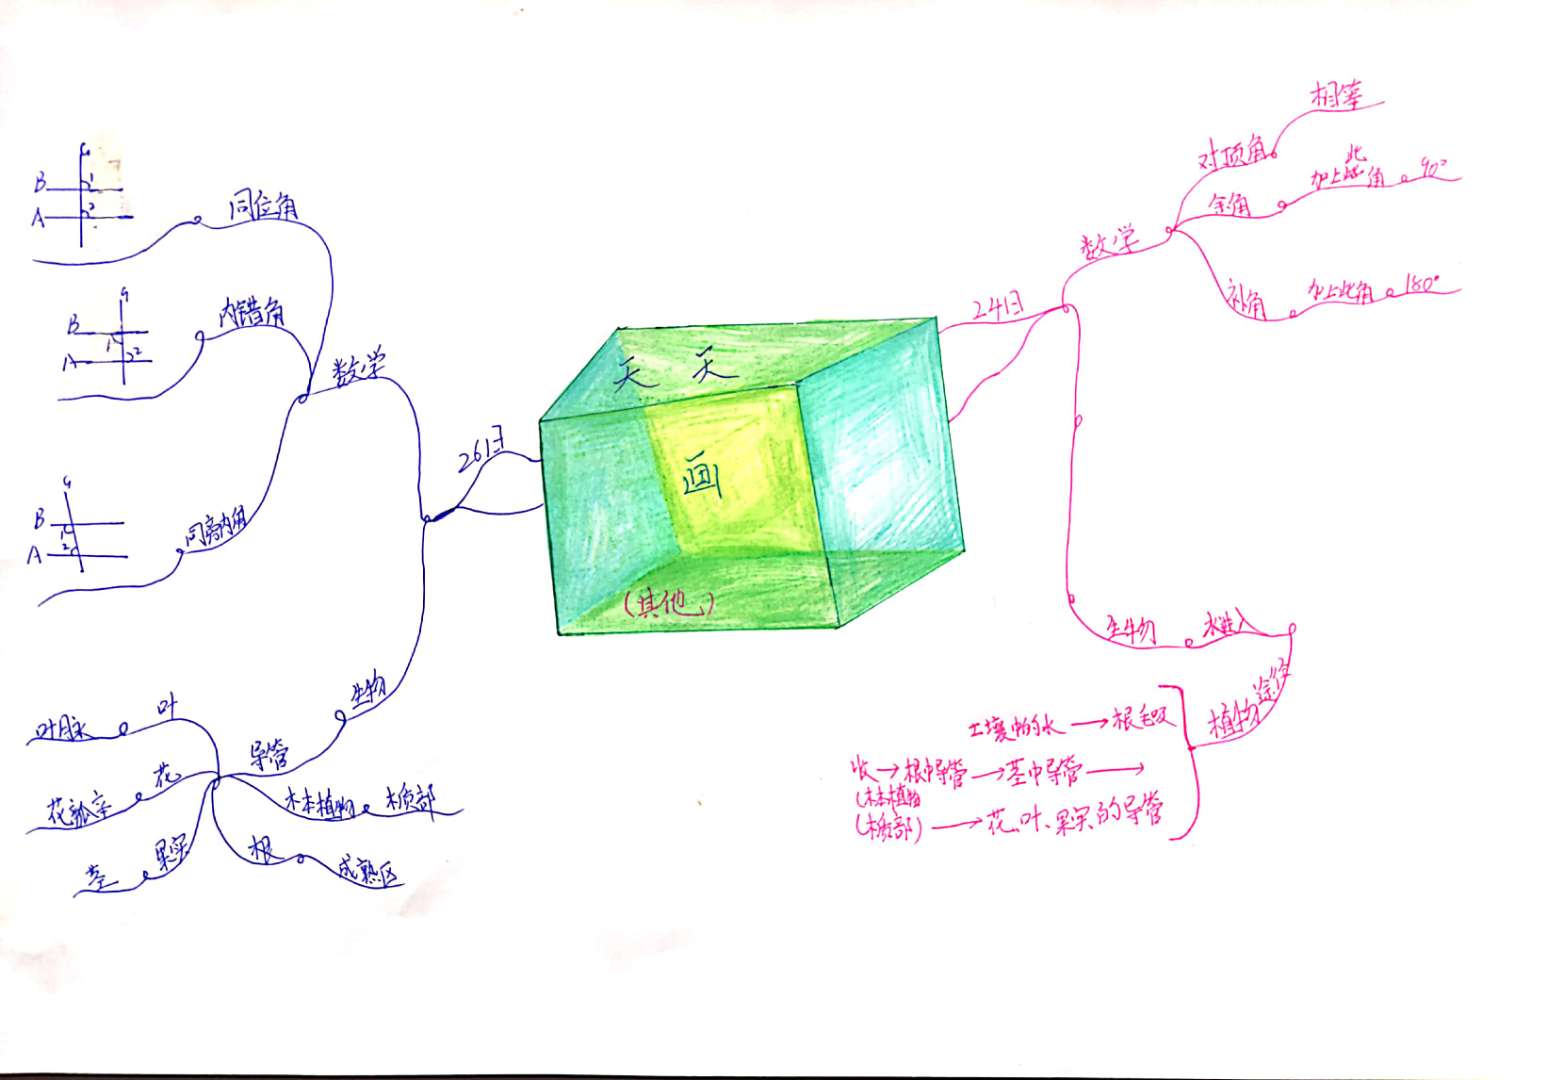 天天
画
(其他)
24日
数学
对顶角
相等
余角
加上此角
此
90°
补角
加上此角
180°
生物
水进入
植物
途径
土壤中的水→根毛吸
收→根中导管→茎中导管→
(木本植物
(木质部)→花、叶、果实的导管
26日
数学
同位角
B
A
1
2
内错角
B
A
1
2
同旁内角
B
A
1
2
生物
导管
叶
叶脉
花
果实
茎
木本植物
木质部
根
成熟区